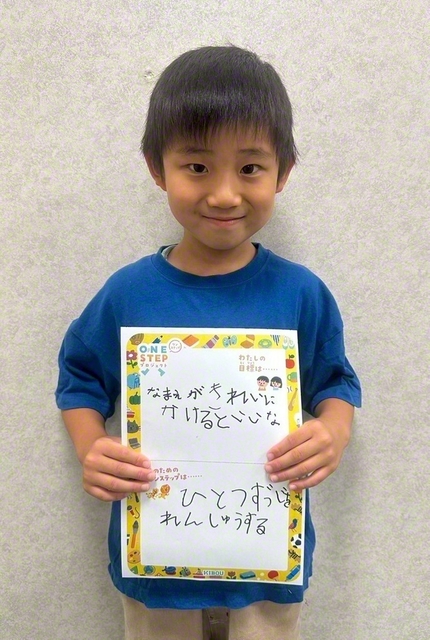 ONE
STEP
プロジェクト
わたしの
目標は……
なまえがきれいに
かけるといいな
のための
ンステップは……
ひとつずつじを
れんしゅうする
KIBOU